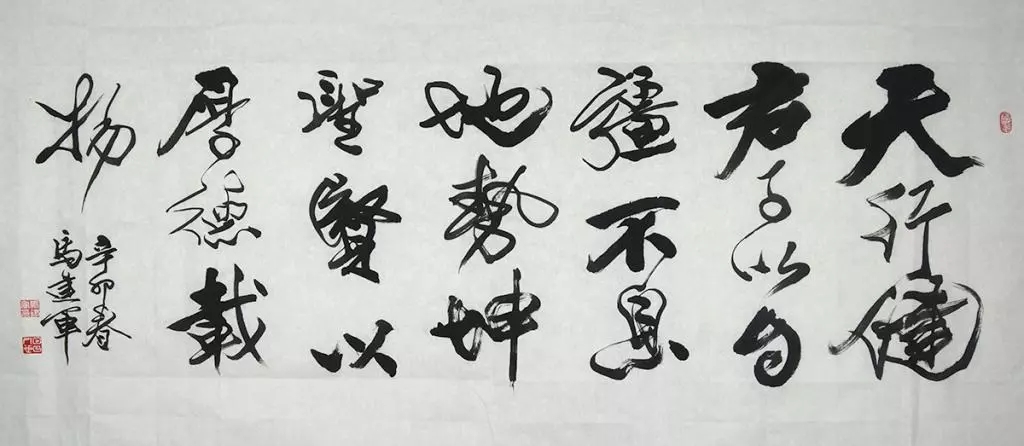 天行健
君子以自
彊不息
地勢坤
聖賢以
厚德載
物
辛卯春
馬建軍